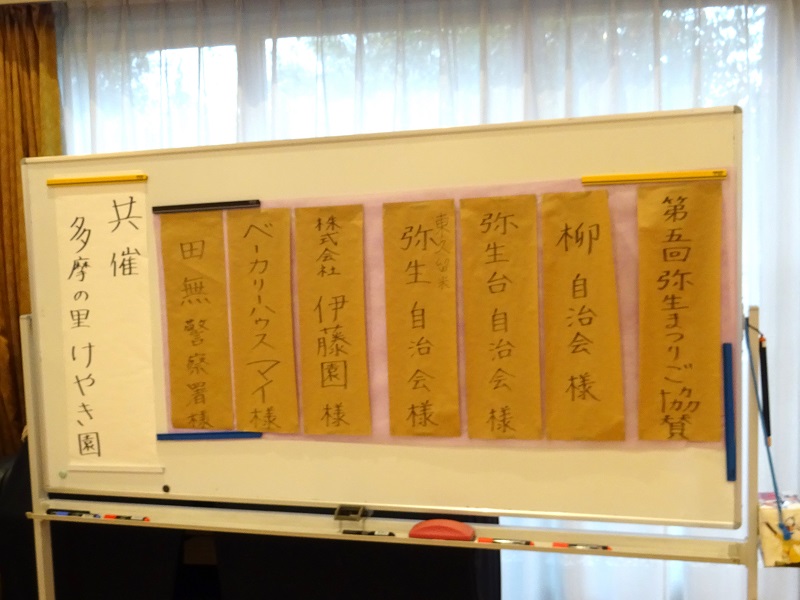 第五回弥生まつりご協賛
柳自治会様
弥生台自治会様
東久留米
弥生自治会様
株式会社 伊藤園様
ベーカリーハウスマイ様
田無警察署様
共催
多摩の里けやき園